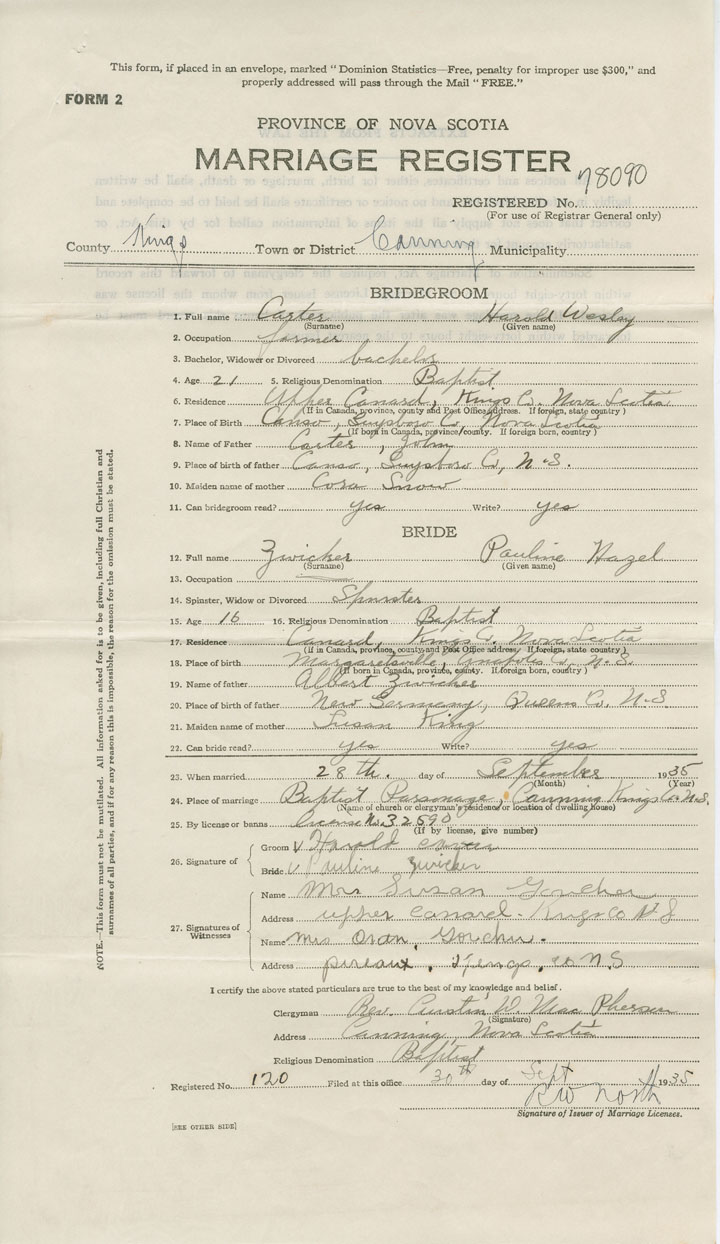 This form, if placed in an envelope, marked "Dominion Statistics—Free, penalty for improper use $300," and
properly addressed will pass through the Mail "FREE."
FORM 2
PROVINCE OF NOVA SCOTIA
MARRIAGE REGISTER
REGISTERED No. 78090
(For use of Registrar General only)
County Kings Town or District Canning Municipality
BRIDEGROOM
1. Full name Carter Harold Wesley
(Surname) (Given name)
2. Occupation farmer
3. Bachelor, Widower or Divorced bachelor
4. Age 21 5. Religious Denomination Baptist
6. Residence Upper Canard, Kings Co. Nova Scotia
(If in Canada, province, county and Post Office address. If foreign, state country)
7. Place of Birth Canso, Guysboro Co, Nova Scotia
(If born in Canada, province/county. If foreign born, country)
8. Name of Father Carter, John
9. Place of birth of father Canso, Guysboro Co, N-S.
10. Maiden name of mother Cora Snow
11. Can bridegroom read? yes Write? yes
BRIDE
12. Full name Zwicker Pauline Hazel
(Surname) (Given name)
13. Occupation
14. Spinster, Widow or Divorced Spinster
15. Age 16 16. Religious Denomination Baptist
17. Residence Canard, Kings Co. Nova Scotia
(If in Canada, province, county and Post Office address. If foreign, state country)
18. Place of birth Margaretsville, Anapolis Co, N-S.
(If born in Canada, province, county. If foreign born, country)
19. Name of father Albert Zwicker
20. Place of birth of father New Germany, Queens Co. N-S.
21. Maiden name of mother Susan King
22. Can bride read? yes Write? yes
23. When married 28th. day of September 1935
(Month) (Year)
24. Place of marriage Baptist Parsonage, Canning Kings Co. N.S.
(Name of church or clergyman's residence or location of dwelling house)
25. By license or banns license No. 32590
(If by license, give number)
26. Signature of
Groom Harold
Bride Pauline Zwicker
27. Signatures of
Witnesses
Name Mrs Susan Goucher
Address upper canard. Kings co N S
Name Mrs Oran, Goucher.
Address pireaux, Kings, co N.S
I certify the above stated particulars are true to the best of my knowledge and belief.
Clergyman Rev. Austin W. MacPherson
(Signature)
Address Canning, Nova Scotia
Religious Denomination Baptist
Registered No. 120 Filed at this office 30th day of Sept 1935
R W North
Signature of Issuer of Marriage Licenses.
[SEE OTHER SIDE]
NOTE.—This form must not be mutilated. All information asked for is to be given, including full Christian and
surnames of all parties, and if for any reason this is impossible, the reason for the omission must be stated.